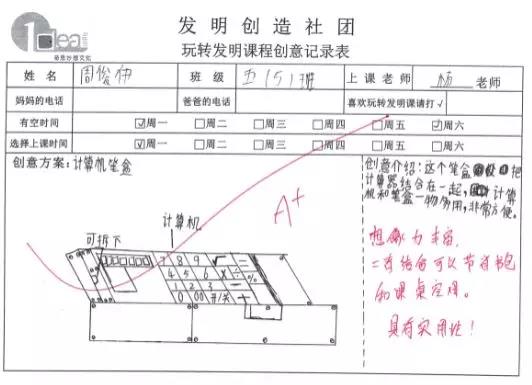 1 idea
奇思妙想文化
发明创造社团
玩转发明课程创意记录表
姓名 周俊伊 班级 五(5)班 上课老师 杨老师
妈妈的电话 爸爸的电话 喜欢玩转发明课请打√
有空时间 ☑周一 □周二 □周三 □周四 ☑周五 ☑周六
选择上课时间 ☑周一 □周二 □周三 □周四 □周五 □周六
创意方案:计算机笔盒
创意介绍:这个笔盒把
计算器结合在一起,计算
机和笔盒一物多用,非常方便。
A+
计算机
可拆下
7 8 9
4 5 6 ×
1 2 3 -
0 00 开/关 +
想象力丰富,
二者结合可以节省书包
和课桌空间。
具有实用性!